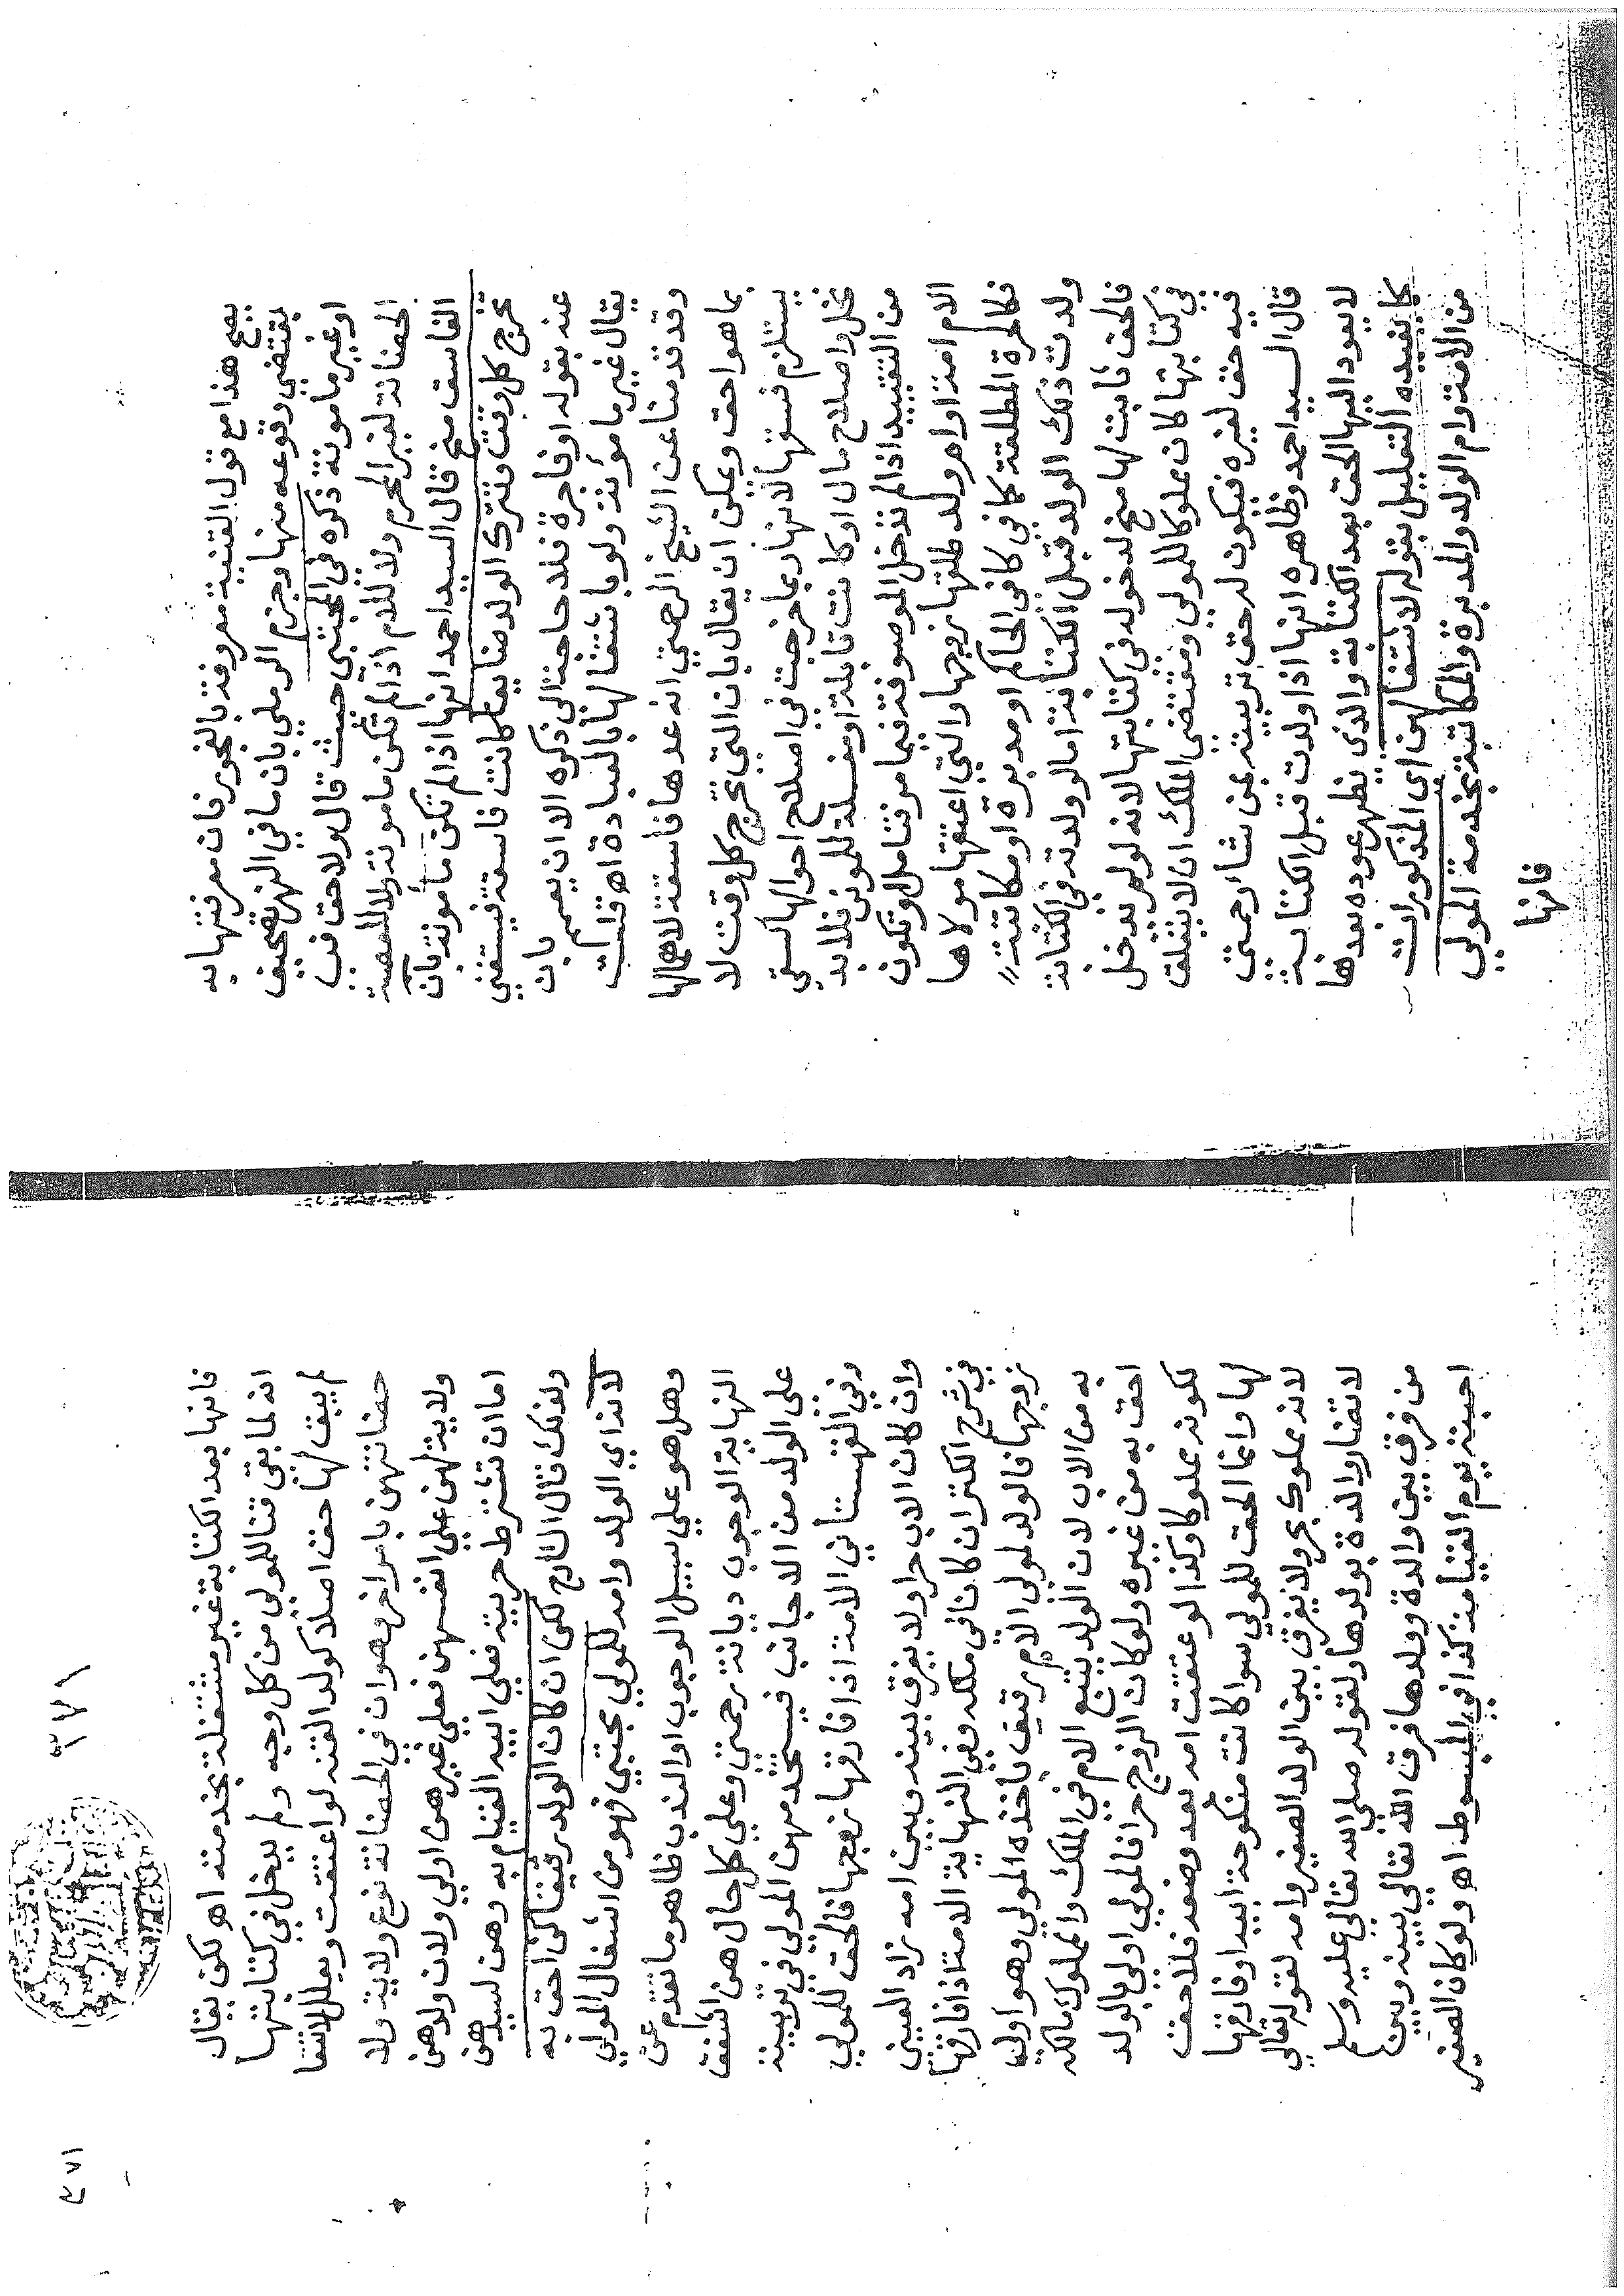 يصح هذا مع قول القنية معروفة بالفجور فان معرفتها به
يقتضي وقوعه منها وجزم الرملي بان ما في النهر تصحيف
او غير مامونة ذكره في المجتبى حيث قال ولا حق في
الحضانة لغير المحرم ولا للام اذا لم تكن مامونة ولا للعصبة
الفاسق منح قال السيد احمد انها اذا لم تكن مأمونة بان
تخرج كل وقت وتترك الولد ضايعا كانت فاسقة فيستغني
عنه بقوله او فاجرة فلا حاجة الى ذكره الا ان يعمم بان
يقال غير مأمونة ولو باشتغالها بالعبادة اه قلت
وقد قدمنا عن الشيخ الرحمتي انه عدها فاسقة لاهمالها
بما هو احق ويمكن ان يقال بان التي تخرج كل وقت لا
يستلزم فسقها لانها ربما خرجت في اصلاح احوالها كسقي
نخل واصلاح مال او كانت قابلة او مغسلة للموتى فلا بد
من التقييد اذا لم تدخل الموصوفة فيما مر فتامل او تكون
الام امة او ام ولد طلقها زوجها والتي اعتقها مولاها
فكالحرة المطلقة كما في كافي الحاكم او مدبرة او مكاتبة
ولدت ذلك الولد قبل الكتابة اما لو ولدته في الكتابة
فالحق ثابت لها منح لدخوله في كتابتها لانه لو لم يدخل
في كتابتها كان مملوكا للمولي ومقتضى الملك ان لا يتعلق
فيه حق لغيره فيكون له حق تربيته بمن شا رحمتي
قال السيد احمد وظاهره انها اذا ولدت قبل الكتابة
لا يعود اليها الحق بعد الكتابة والذي يظهر عوده بعدها
كما يفيده التعليل بقوله لاشتغالهن اي المذكورات
من الامة وام الولد والمدبرة والمكاتبة بخدمة المولي
فانها
١٧٤
فانها بعد الكتابة غير مشتغلة بخدمته اه لكن يقال
انه لما بقى قنا للمولي من كل وجه ولم يدخل في كتابتها
لم يبق لها حق اصلا كولد القنه لو اعتقت ويعلل لاشتغا
حضانتهن بامر اخر وهو ان في الحضانة نوع ولاية ولا
ولاية لهن علي انفسهن فعلي غيرهن اولي ولان ولدهن
اما ان تشترط حريته فعلي ابيه القيام به وهن لسيدهن
ولذلك قال الشارح لكن ان كان الولد رقيقا كن احق به
لانه اي الولد وامه للمولي مجتبي فهو من اشغال المولي
وهل هو علي سبيل الوجوب او الندب ظاهر ما تقدم عن
النهاية الوجوب ديانة رحمتي وعلي كل حال هن اشفق
على الولد من الاجانب فيستخدمهن المولي في تربيته
وفي القهستاني الامة اذا فارقها زوجها فالحق للمولي
وان كان الاب حرا ولا يفرق بينه وبين امه زاد العيني
في شرح الكنز ان كانا في ملكه وفي النهاية الامة اذا فارقها
زوجها فالولد لمولي الام رقيق ياخذه المولي وهو اولي
به من الاب لان الولد يتبع الام في الملك والمملوك مالكه
احق به من غيره ولو كان الزوج حرا فالمولي اولي بالولد
لكونه مملوكا وكذا لو عتقت امه بعد وضعه فلا حق
لها وانما الحق للمولي سوا كانت منكوحة ابيه او فارقها
لانه مملوك بحر ولا يفرق بين الولد الصغير وامه لقوله تعالي
لا تضار والدة بولدها ولقوله صلى الله تعالي عليه وسلم
من فرق بين والدة وولدها فرق الله تعالي بينه وبين
احبته يوم القيامة كذا في المبسوط اه ولو كان الصغير